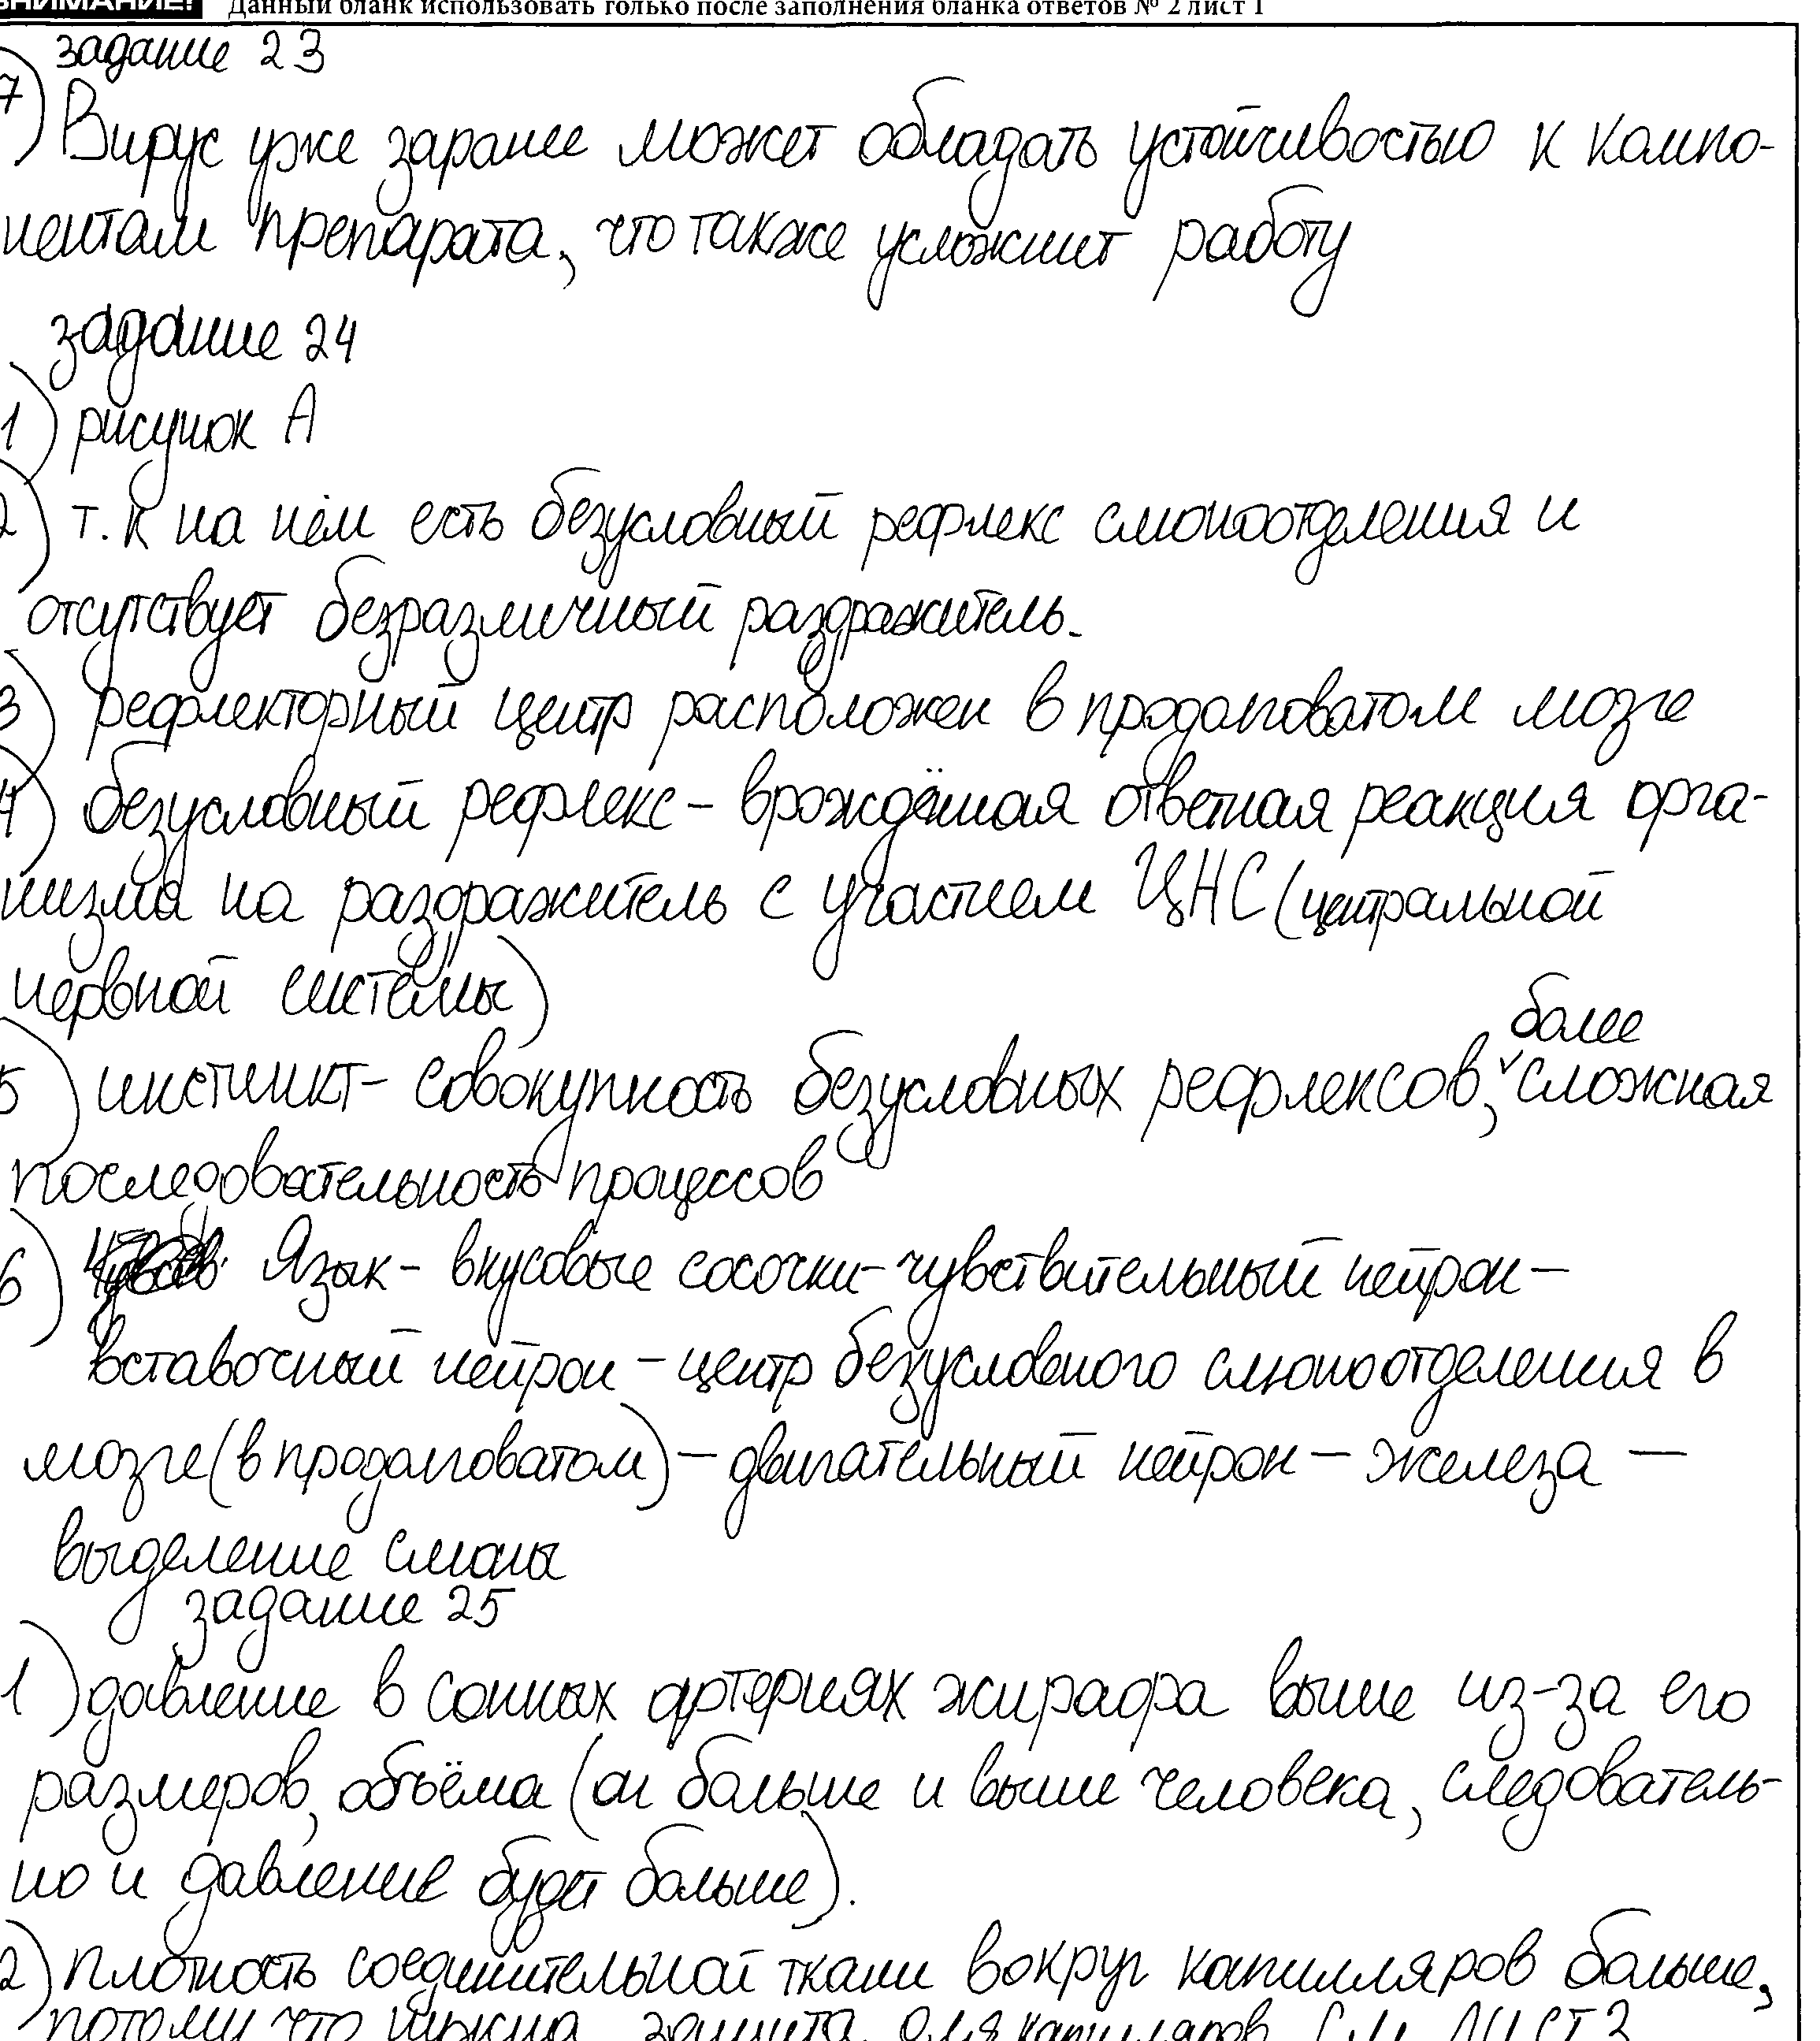 ВНИМАНИЕ! Данный бланк использовать только после заполнения бланка ответов № 2 лист 1
задание 23
7) Вирус уже заранее может обладать устойчивостью к компо-
нентам препарата, что также усложнит работу
задание 24
1) рисунок А
2) т.к на нём есть безусловный рефлекс слюноотделения и
отсутствует безразличный раздражитель.
3) рефлекторный центр расположен в продолговатом мозге
4) безусловный рефлекс - врождённая ответная реакция орга-
низма на раздражитель с участием ЦНС (центральной
нервной системы)
5) инстинкт - совокупность безусловных рефлексов, более сложная
последовательность процессов
6) Язык - вкусовые сосочки - чувствительный нейрон -
вставочный нейрон - центр безусловного слюноотделения в
мозге (в продолговатом) - двигательный нейрон - железа -
выделение слюны
задание 25
1) давление в сонных артериях жирафа выше из-за его
размеров, объёма (он больше и выше человека, следователь-
но и давление будет больше).
2) плотность соединительной ткани вокруг капилляров больше,
потому что нужна защита для капилляров См ЛИСТ 3